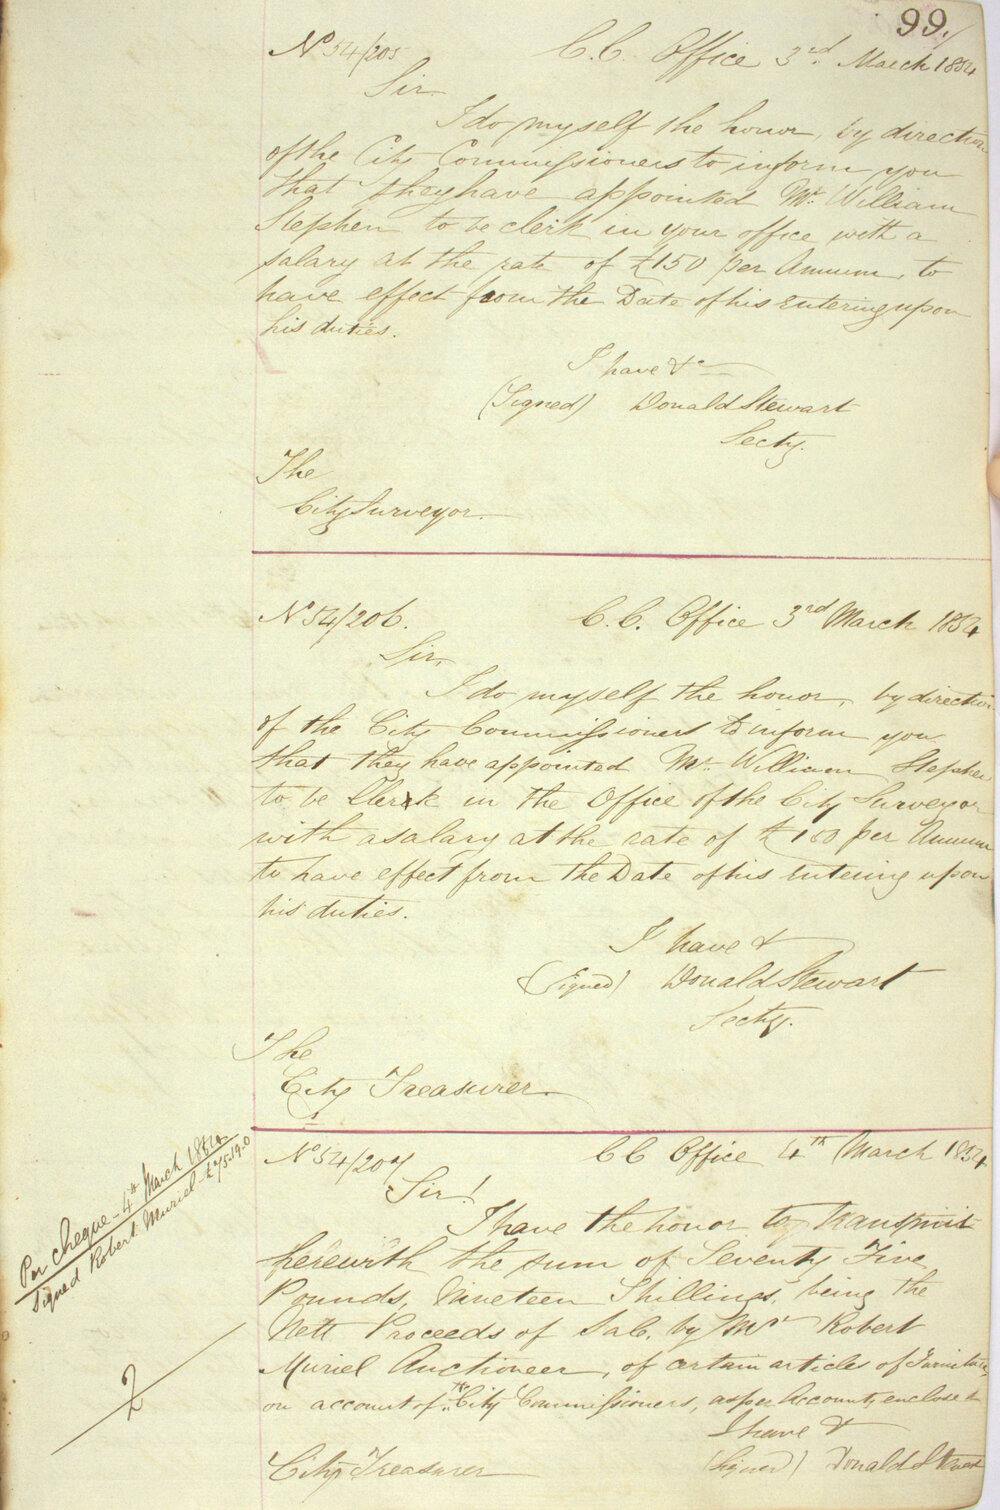 99.
No 54/205 C.C. Office 3rd. March 1854
Sir
I do myself the honor, by direction
of the City Commissioners to inform you
that they have appointed Mr. William
Stephen to be clerk in your office with a
salary at the rate of £150 per Annum, to
have effect from the Date of his entering upon
his duties.
I have &c
(Signed) Donald Stewart
Secty.
The
City Surveyor.
No 54/206. C.C. Office 3rd March 1854
Sir,
I do myself the honor, by direction
of the City Commissioners to inform you
that they have appointed Mr. William Stephen
to be Clerk in the Office of the City Surveyor
with a salary at the rate of £150 per Annum
to have effect from the Date of his entering upon
his duties.
I have &
(Signed) Donald Stewart
Secty.
The
City Treasurer.
No 54/207 C C Office 4th March 1854
Sir!
I have the honor to transmit
herewith the sum of Seventy Five
Pounds, Nineteen Shillings, being the
Nett Proceeds of Sale, by Mr. Robert
Muriel Auctioneer, of certain articles of Furniture,
on account of the City Commissioners, as per Account, enclosed
I have &
(Signed) Donald Stewart
City Treasurer
Per Cheque - 4th March 1854
Signed Robert Muriel - £75.19.0
2